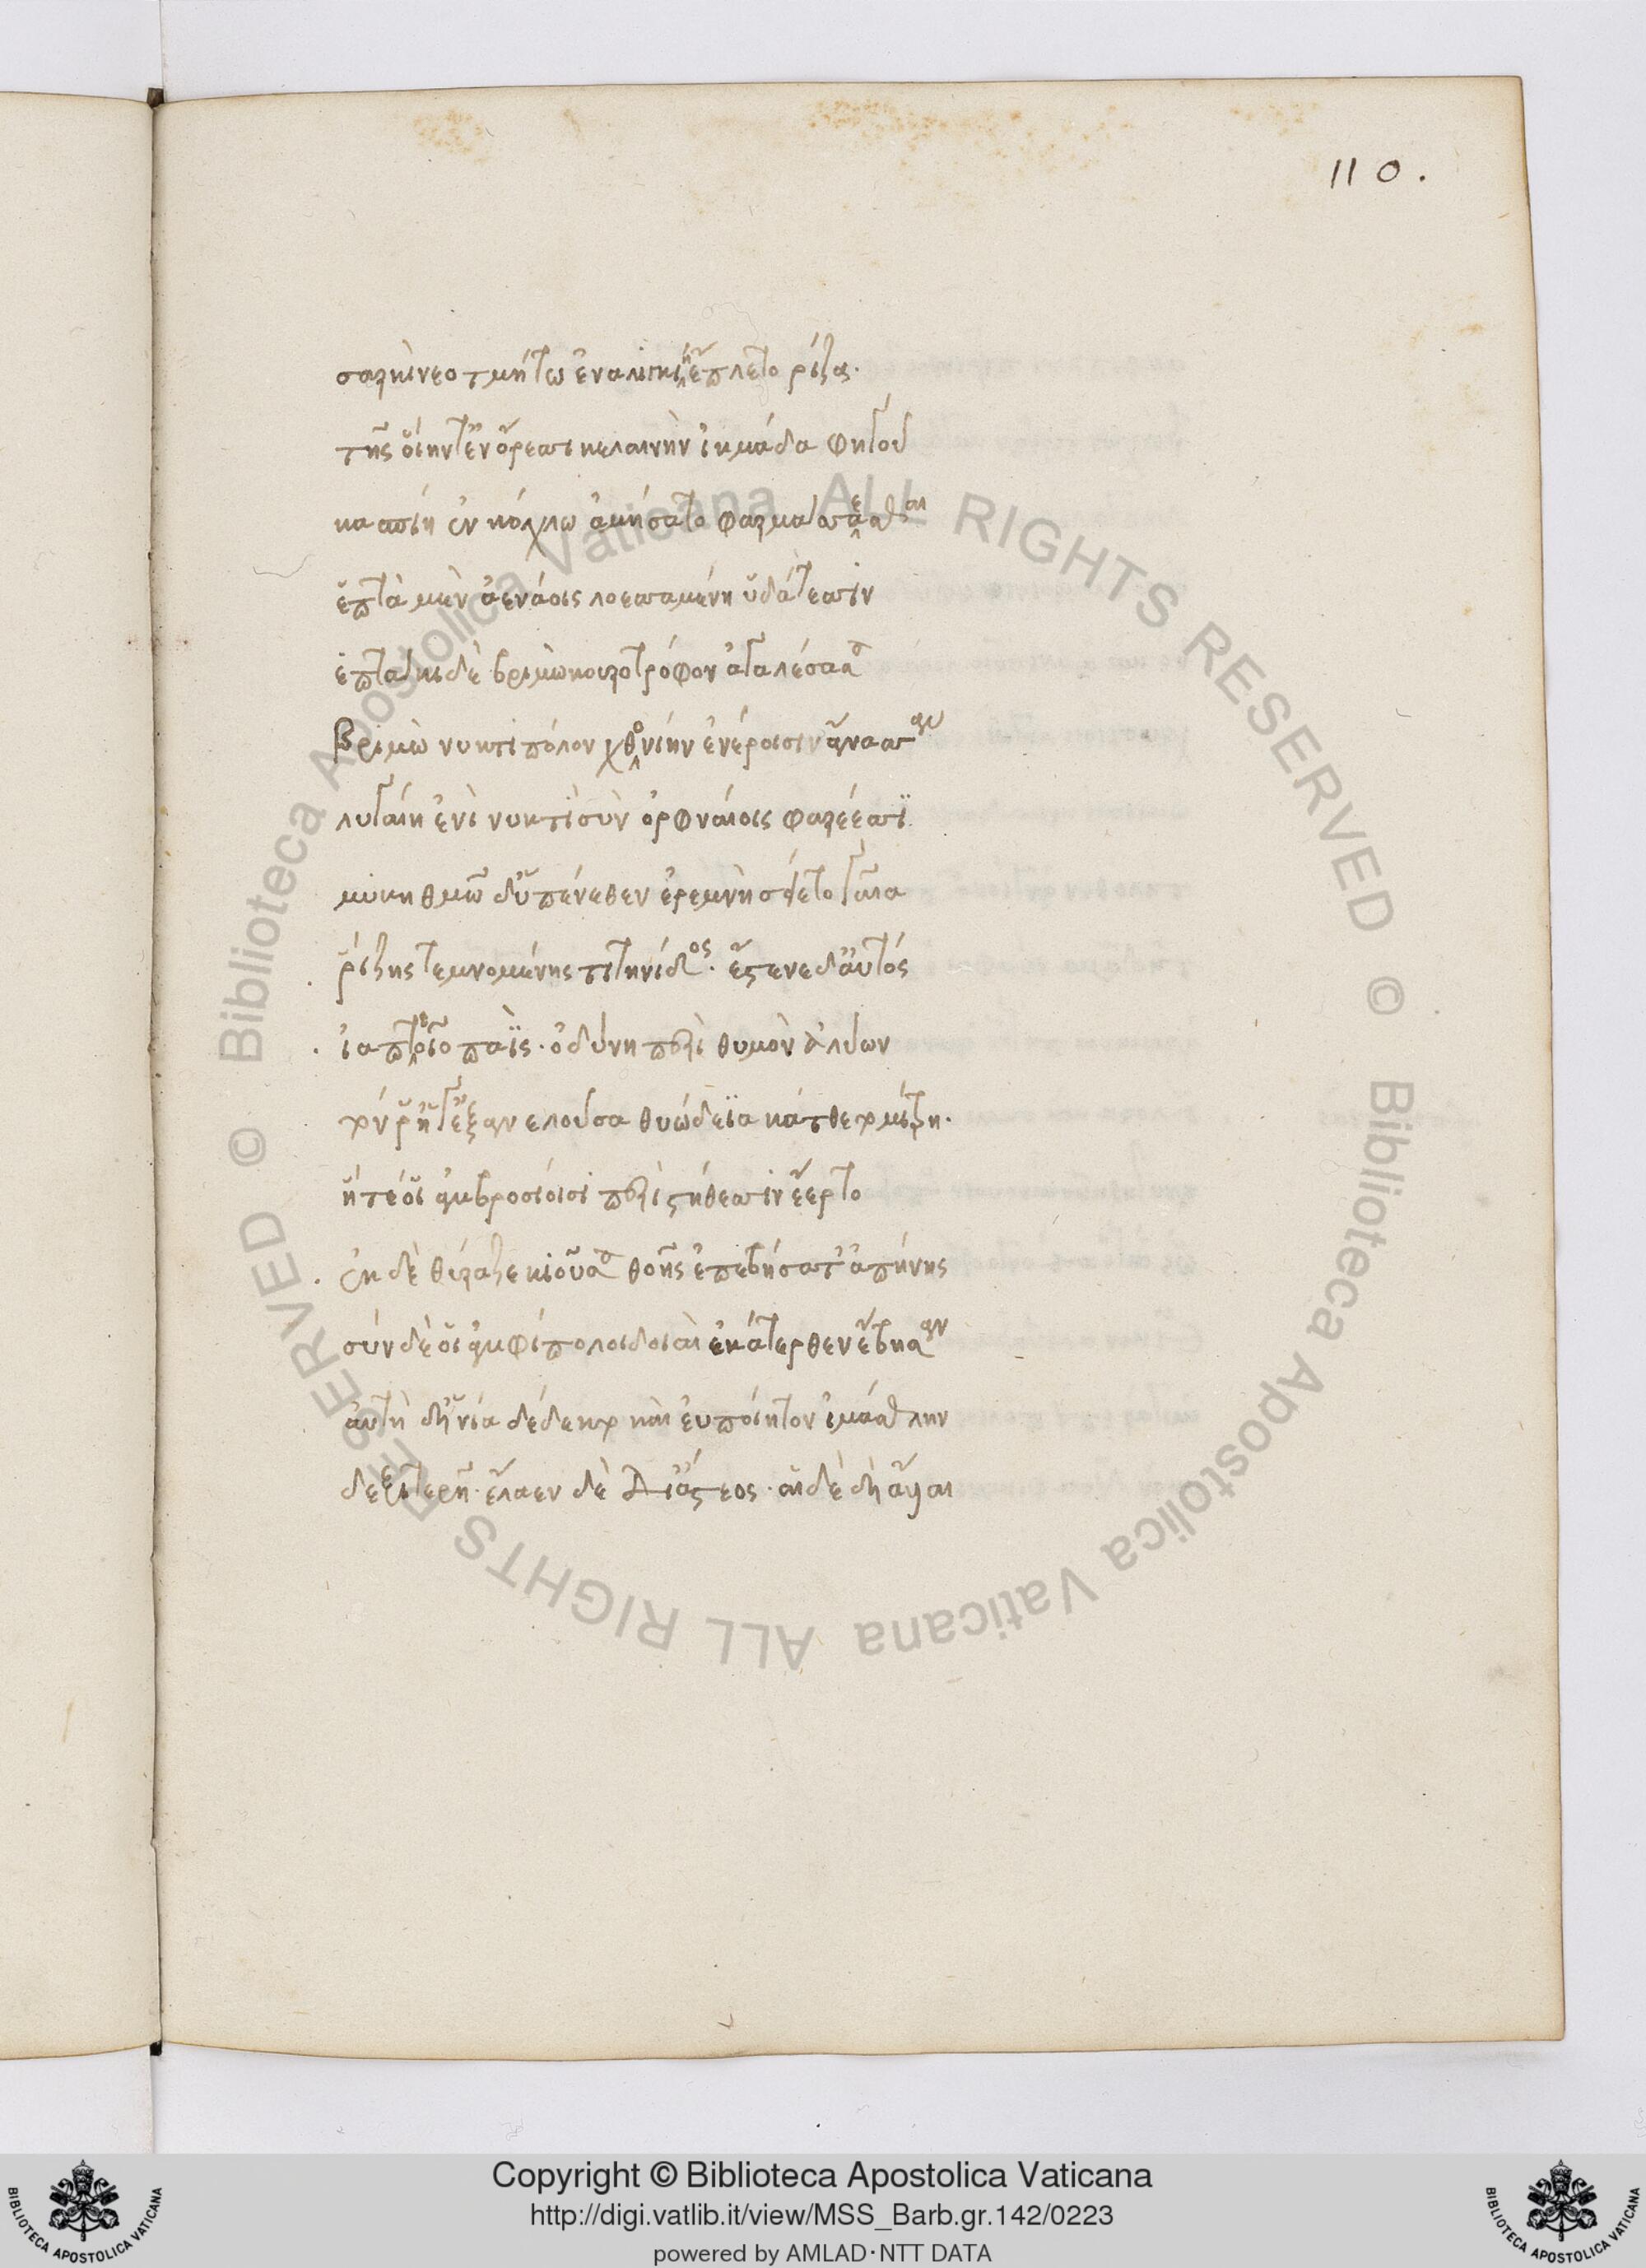 110.
σαρκὶ νεοτμήτω ἐναλιγκίη ἔπλετο ρίζα.
τῆς οἵην τ' ἐν ὄρεσσι κελαινὴν ἰκμάδα φηγοῦ
κασπίη ἐν κόχλω ἀμήσατο φαρμάσσεσθαι
ἑπτὰ μὲν ἀενάοις λοεσσαμένη ὑδάτεσσιν
ἑπτάκι δὲ βριμὼ κουροτρόφον ἀγκαλέσασα
Βριμὼ νυκτιπόλον χθονίην ἐνέροισιν ἄνασσαν
λυγαίη ἐνὶ νυκτὶ σὺν ὀρφναίοις φαρέεσσι
μυκηθμῶ δ' ὑπένεθεν ἐρεμνὴ σείετο γαῖα
ῥίζης τεμνομένης τιτηνίδος. ἔστενε δ' αὐτὸς
ἰαπετοῖο πάϊς. ὀδύνη περὶ θυμὸν ἀλύων
τόν ῥ' ἥγ' ἐξανελοῦσα θυώδεϊ κάτθετο μίτρη.
ἥ τέ οἱ ἀμβροσίοισι περὶ στήθεσσιν ἔερτο
ἐκ δὲ θύραζε κιοῦσα θοῆς ἐπεβήσατ' ἀπήνης
σὺν δέ οἱ ἀμφίπολοι δοιαὶ ἑκάτερθεν ἔβησαν
αὐτὴ δ' ἡνία δέδεκτο καὶ εὐποίητον ἱμάσθλην
δεξιτερῆ. ἔλαεν δὲ δι' ἄστεος. αἱ δὲ δὴ ἄλλαι
Copyright © Biblioteca Apostolica Vaticana
http://digi.vatlib.it/view/MSS_Barb.gr.142/0223
powered by AMLAD·NTT DATA